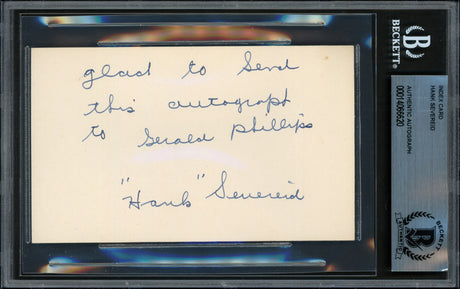 glad to send
this autograph
to Gerald Phillips
"Hank" Severeid
BECKETT
INDEX CARD
HANK SEVEREID
AUTHENTIC AUTOGRAPH
00014066620
BECKETT
AUTHENTIC